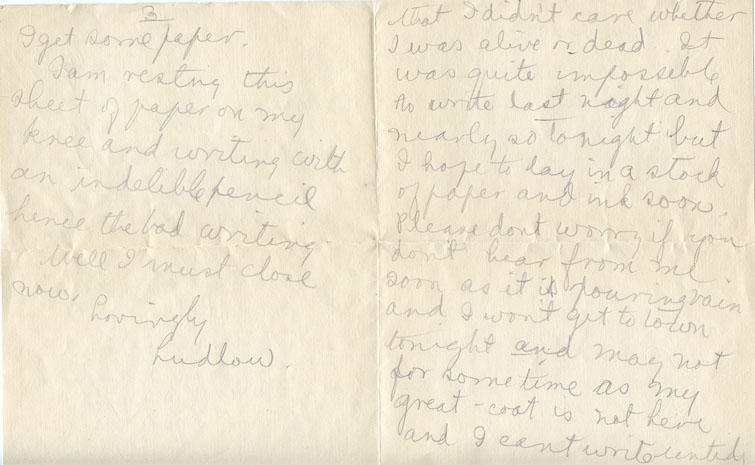 that I didn't care whether
I was alive or dead. It
was quite impossible
to write last night and
nearly so tonight but
I hope to lay in a stock
of paper and ink soon
Please dont worry if you
don't hear from me
soon as it is pouring rain
and I won't get to town
tonight and may not
for sometime as my
great-coat is not here
and I cant write until
3
I get some paper.
I am resting this
sheet of paper on my
knee and writing with
an indelible pencil
hence the bad writing.
Well I must close
now.
Lovingly
Ludlow.